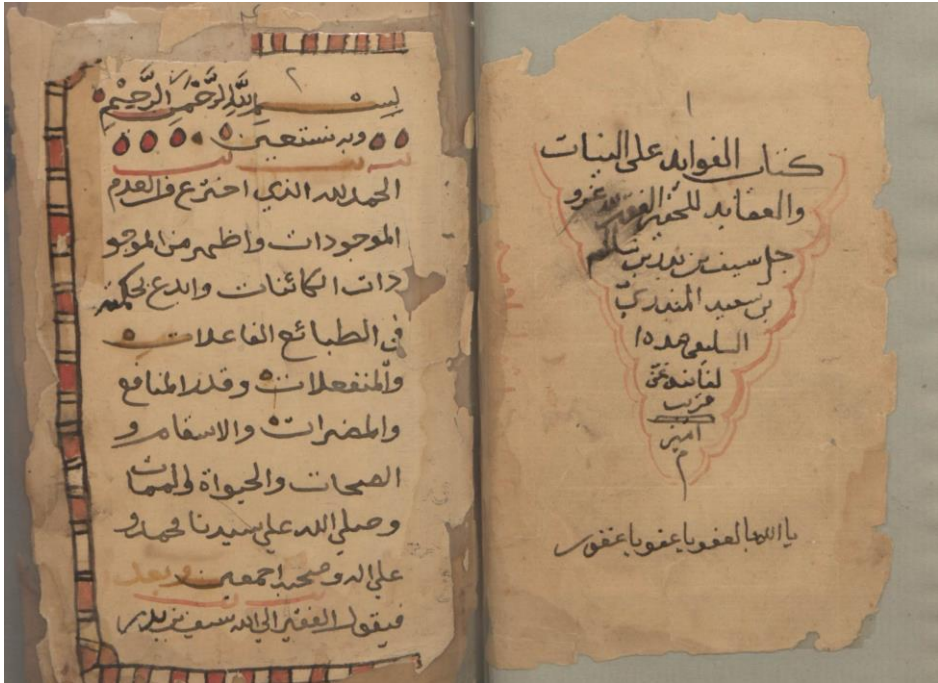 ١
كتاب الفوايد على النيات
والعقايد للحقير الفقير لله عزو
جل سيف بن بدر بن سالم
بن سعيد المنذري
السليفي هدها
لفائده عن
قريب
امين
م
يا الله بالعفو يا عفو يا غفور
٢
بسم الله الرحمن الرحيم
وبه نستعين
الحمد لله الذي اخترع من العدم
الموجودات واظهر من الموجو
دات الكائنات وابدع بحكمته
في الطبائع الفاعلات
والمنفعلات وقدر المنافع
والمضرات والاسقام و
الصحات والحيواة والممات
وصلي الله علي سيدنا محمد و
علي اله وصحبه اجمعين وبعد
فيقول الفقير الي الله سيف بن بدر